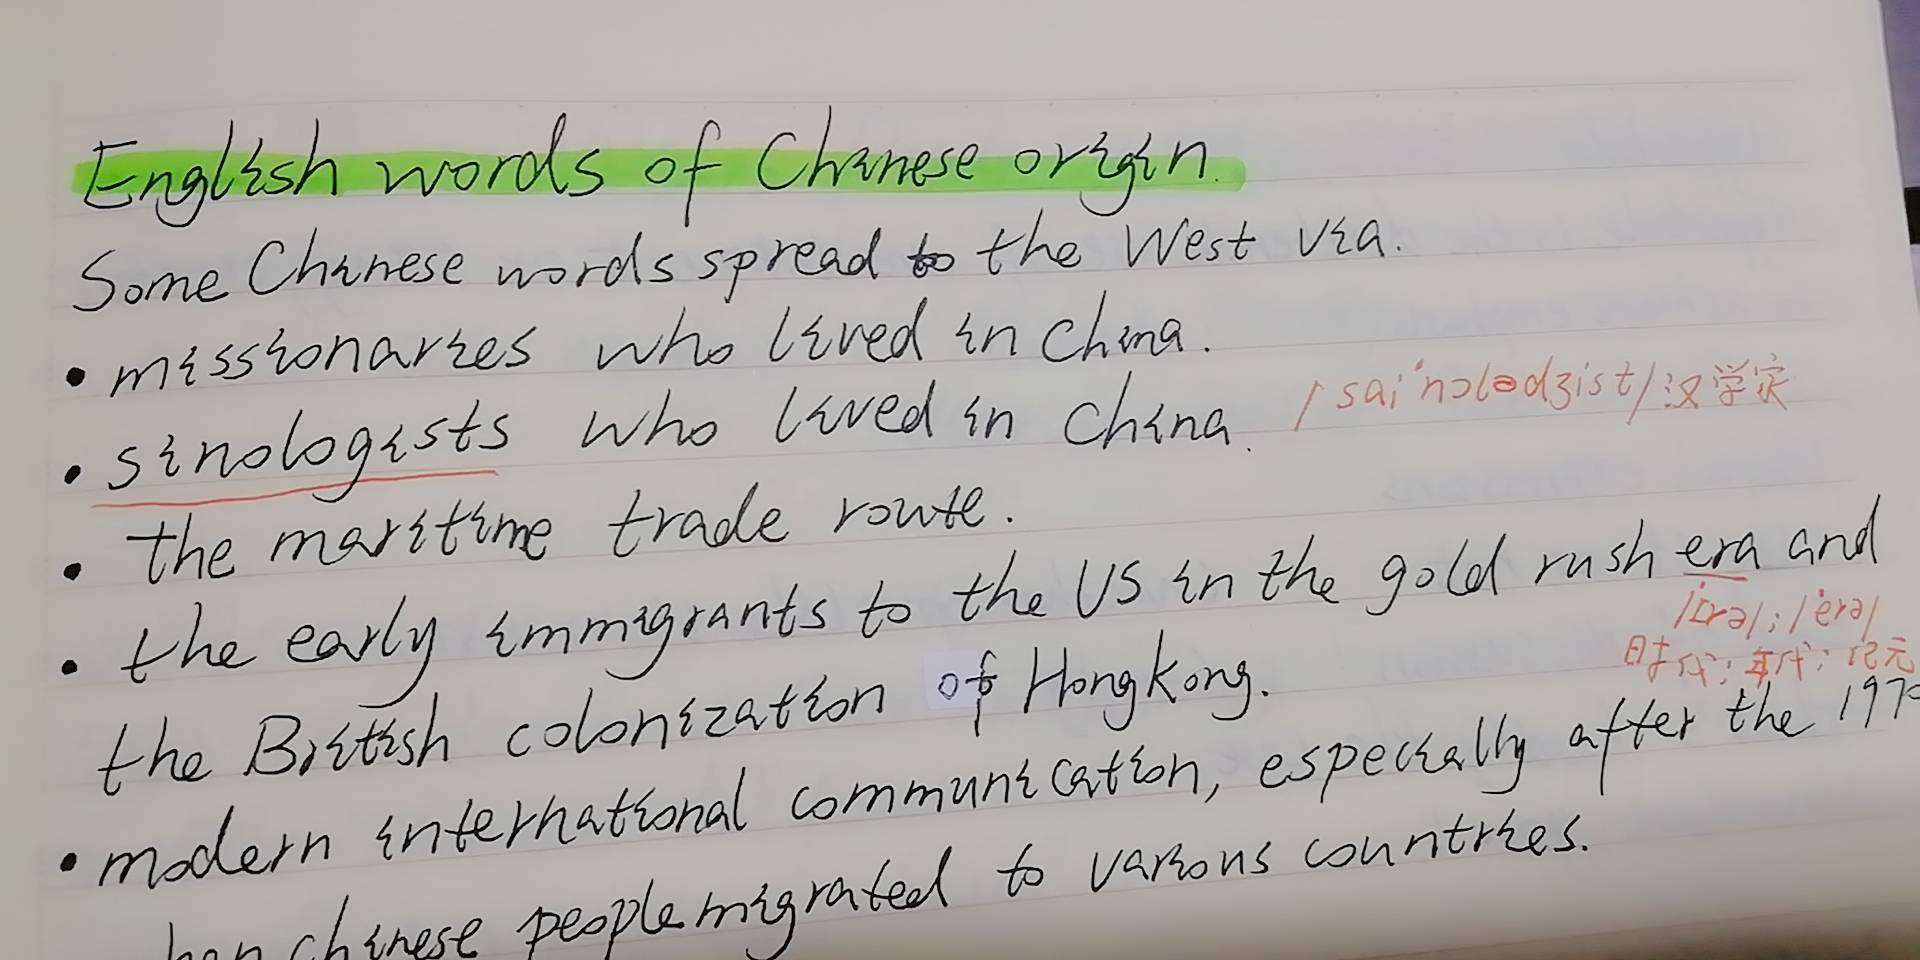 English words of Chinese origin.
Some Chinese words spread to the West via.
• missionaries who lived in China.
• sinologists who lived in China. /sai'nɔlədʒist/汉学家
• the maritime trade route.
• the early immigrants to the US in the gold rush era and
/ɪrə/; /'erə/
时代; 年代; 纪元
the British colonization of Hongkong.
• modern international communication, especially after the 197
chinese people migrated to various countries.